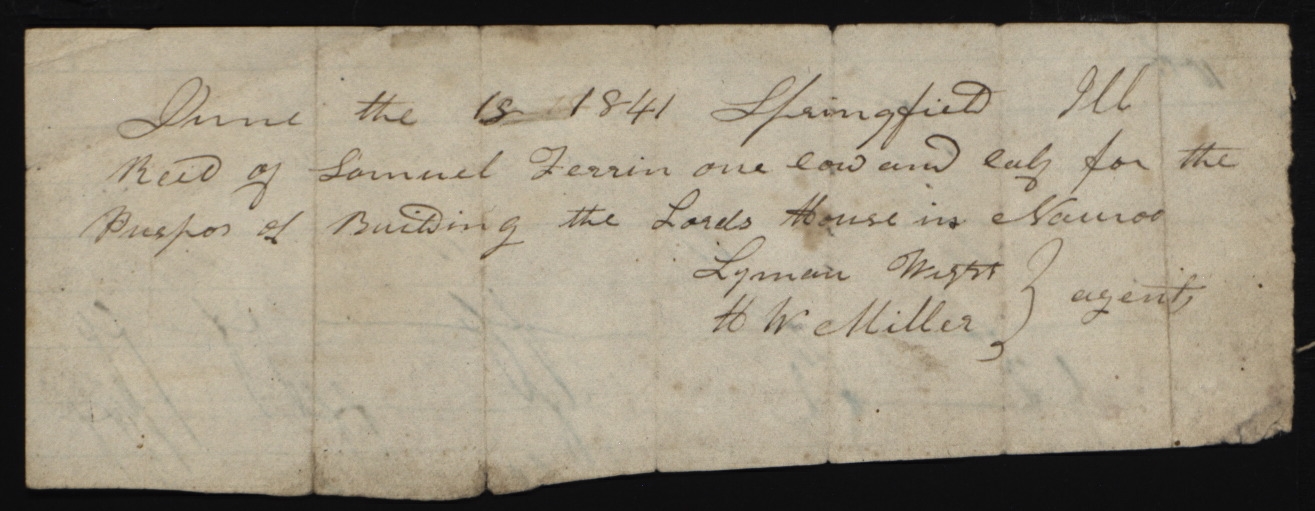 June the 18 1841 Springfield Ill
Recd of Samuel Ferrin one cow and calf for the
Purpos of Building the Lords House in Nauvoo
Lyman Wight } agents
H W Miller